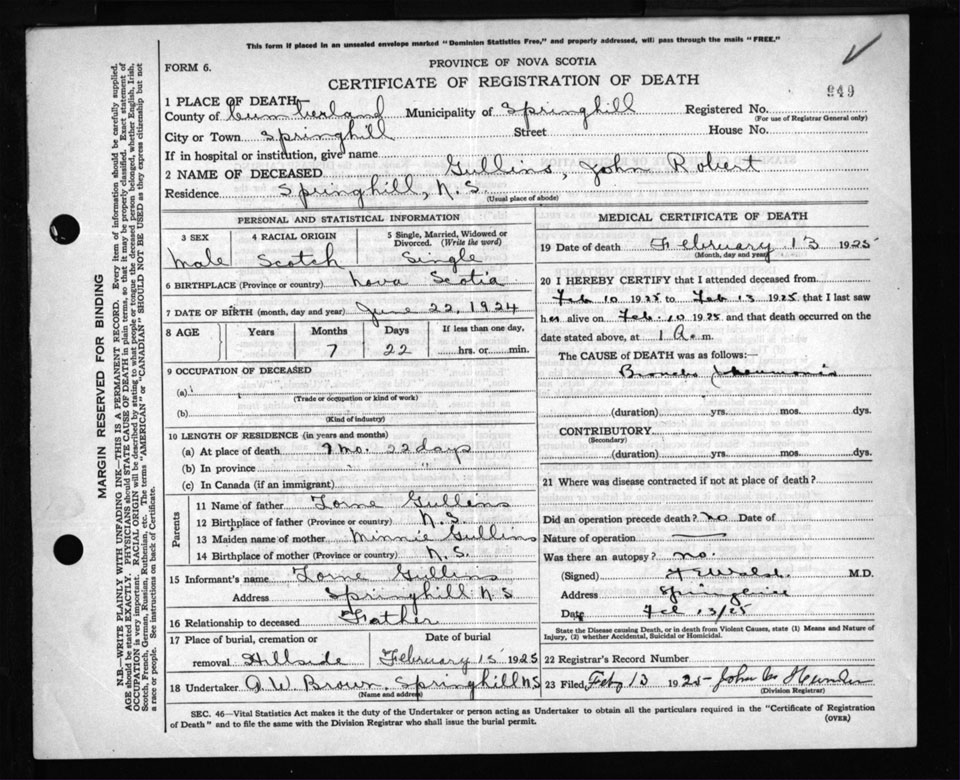 This form if placed in an unsealed envelope marked "Dominion Statistics Free," and properly addressed, will pass through the mails "FREE."
PROVINCE OF NOVA SCOTIA
FORM 6.
CERTIFICATE OF REGISTRATION OF DEATH
949
1 PLACE OF DEATH—
County of Cumberland Municipality of Springhill Registered No.
(For use of Registrar General only)
City or Town Springhill Street House No.
If in hospital or institution, give name
2 NAME OF DECEASED Gullins, John Robert
Residence Springhill, N.S.
(Usual place of abode)
PERSONAL AND STATISTICAL INFORMATION
3 SEX 4 RACIAL ORIGIN 5 Single, Married, Widowed or Divorced. (Write the word)
Male Scotch Single
6 BIRTHPLACE (Province or country) Nova Scotia
7 DATE OF BIRTH (month, day and year) June 22, 1924
8 AGE Years Months Days If less than one day,
7 22 hrs. or min.
9 OCCUPATION OF DECEASED
(a)
(Trade or occupation or kind of work)
(b)
(Kind of industry)
10 LENGTH OF RESIDENCE (in years and months)
(a) At place of death 7 mo. 22 days
(b) In province " "
(c) In Canada (if an immigrant)
Parents
11 Name of father Lorne Gullins
12 Birthplace of father (Province or country) N.S.
13 Maiden name of mother Minnie Gullins
14 Birthplace of mother (Province or country) N.S.
15 Informant's name Lorne Gullins
Address Springhill N.S
16 Relationship to deceased Father
17 Place of burial, cremation or removal Hillside
Date of burial
February 15 1925
18 Undertaker A W Brown, Springhill N.S
(Name and address)
MEDICAL CERTIFICATE OF DEATH
19 Date of death February 13 1925
(Month, day and year)
20 I HEREBY CERTIFY that I attended deceased from
Feb 10 1925 to Feb 13 1925 that I last saw
h alive on Feb. 10 1925 and that death occurred on the
date stated above, at 1 A. m.
The CAUSE OF DEATH was as follows:—
Broncho
(duration) yrs. mos. dys.
CONTRIBUTORY
(Secondary)
(duration) yrs. mos. dys.
21 Where was disease contracted if not at place of death?
Did an operation precede death? no Date of
Nature of operation
Was there an autopsy? no.
(Signed) M.D.
Address
Date Feb 13/25
State the Disease causing Death, or in death from Violent Causes, state (1) Means and Nature of
Injury, (2) whether Accidental, Suicidal or Homicidal.
22 Registrar's Record Number
23 Filed, Feby 13 1925 John
(Division Registrar)
SEC. 46—Vital Statistics Act makes it the duty of the Undertaker or person acting as Undertaker to obtain all the particulars required in the "Certificate of Registration
of Death" and to file the same with the Division Registrar who shall issue the burial permit.
(OVER)
MARGIN RESERVED FOR BINDING
N.B.—WRITE PLAINLY WITH UNFADING INK—THIS IS A PERMANENT RECORD. Every item of information should be carefully supplied.
AGE should be stated EXACTLY. PHYSICIANS should STATE CAUSE OF DEATH in plain terms, so that it may be properly classified. Exact statement of
OCCUPATION is very important. RACIAL ORIGIN will be described by stating to what people or tongue the deceased person belonged, whether English, Irish,
Scotch, French, German, Russian, Ruthenian, etc. The terms "AMERICAN" or "CANADIAN" SHOULD NOT BE USED as they express citizenship but not
a race or people. See instructions on back of Certificate.